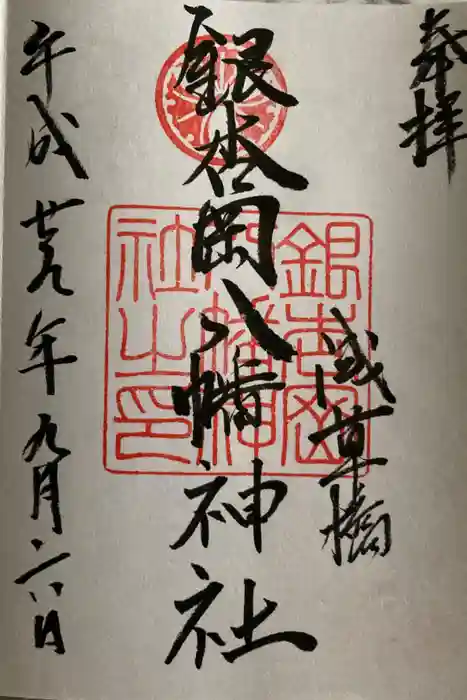 奉拝
浅草橋
銀杏岡八幡神社
平成廿九年九月二八日
銀杏岡
八幡神
社之印